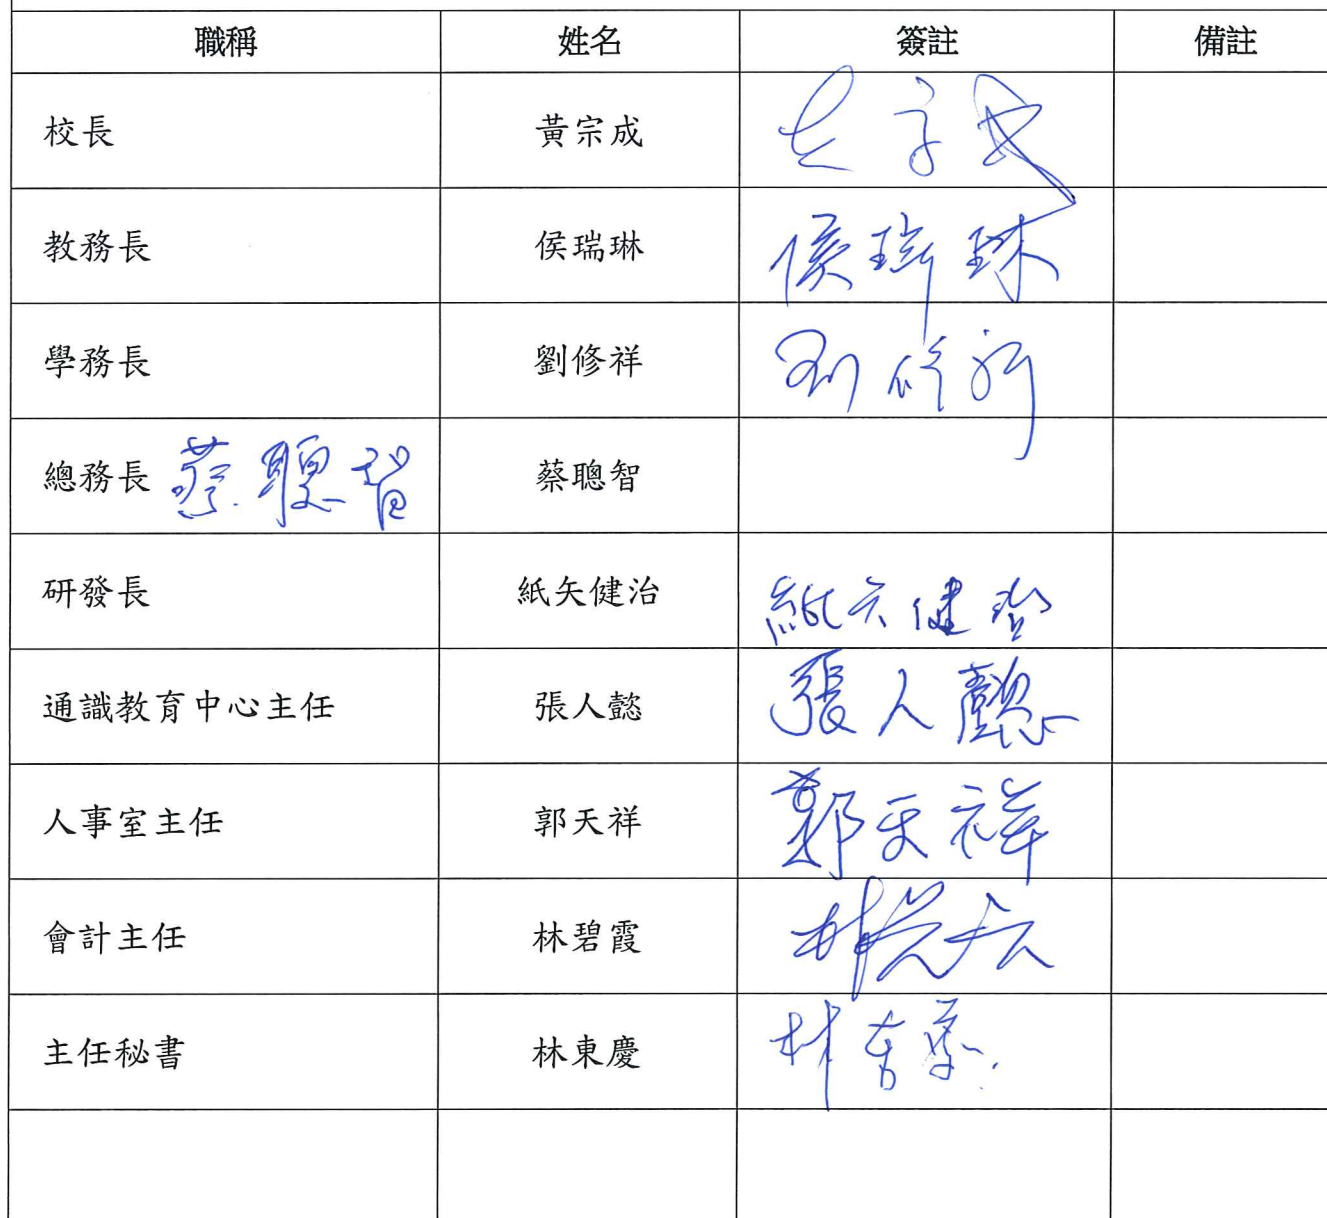 職稱 姓名 簽註 備註
校長 黃宗成
教務長 侯瑞琳 侯瑞琳
學務長 劉修祥 劉修祥
總務長 蔡聰智 蔡聰智
研發長 紙矢健治 紙矢健治
通識教育中心主任 張人懿 張人懿
人事室主任 郭天祥 郭天祥
會計主任 林碧霞
主任秘書 林東慶 林東慶